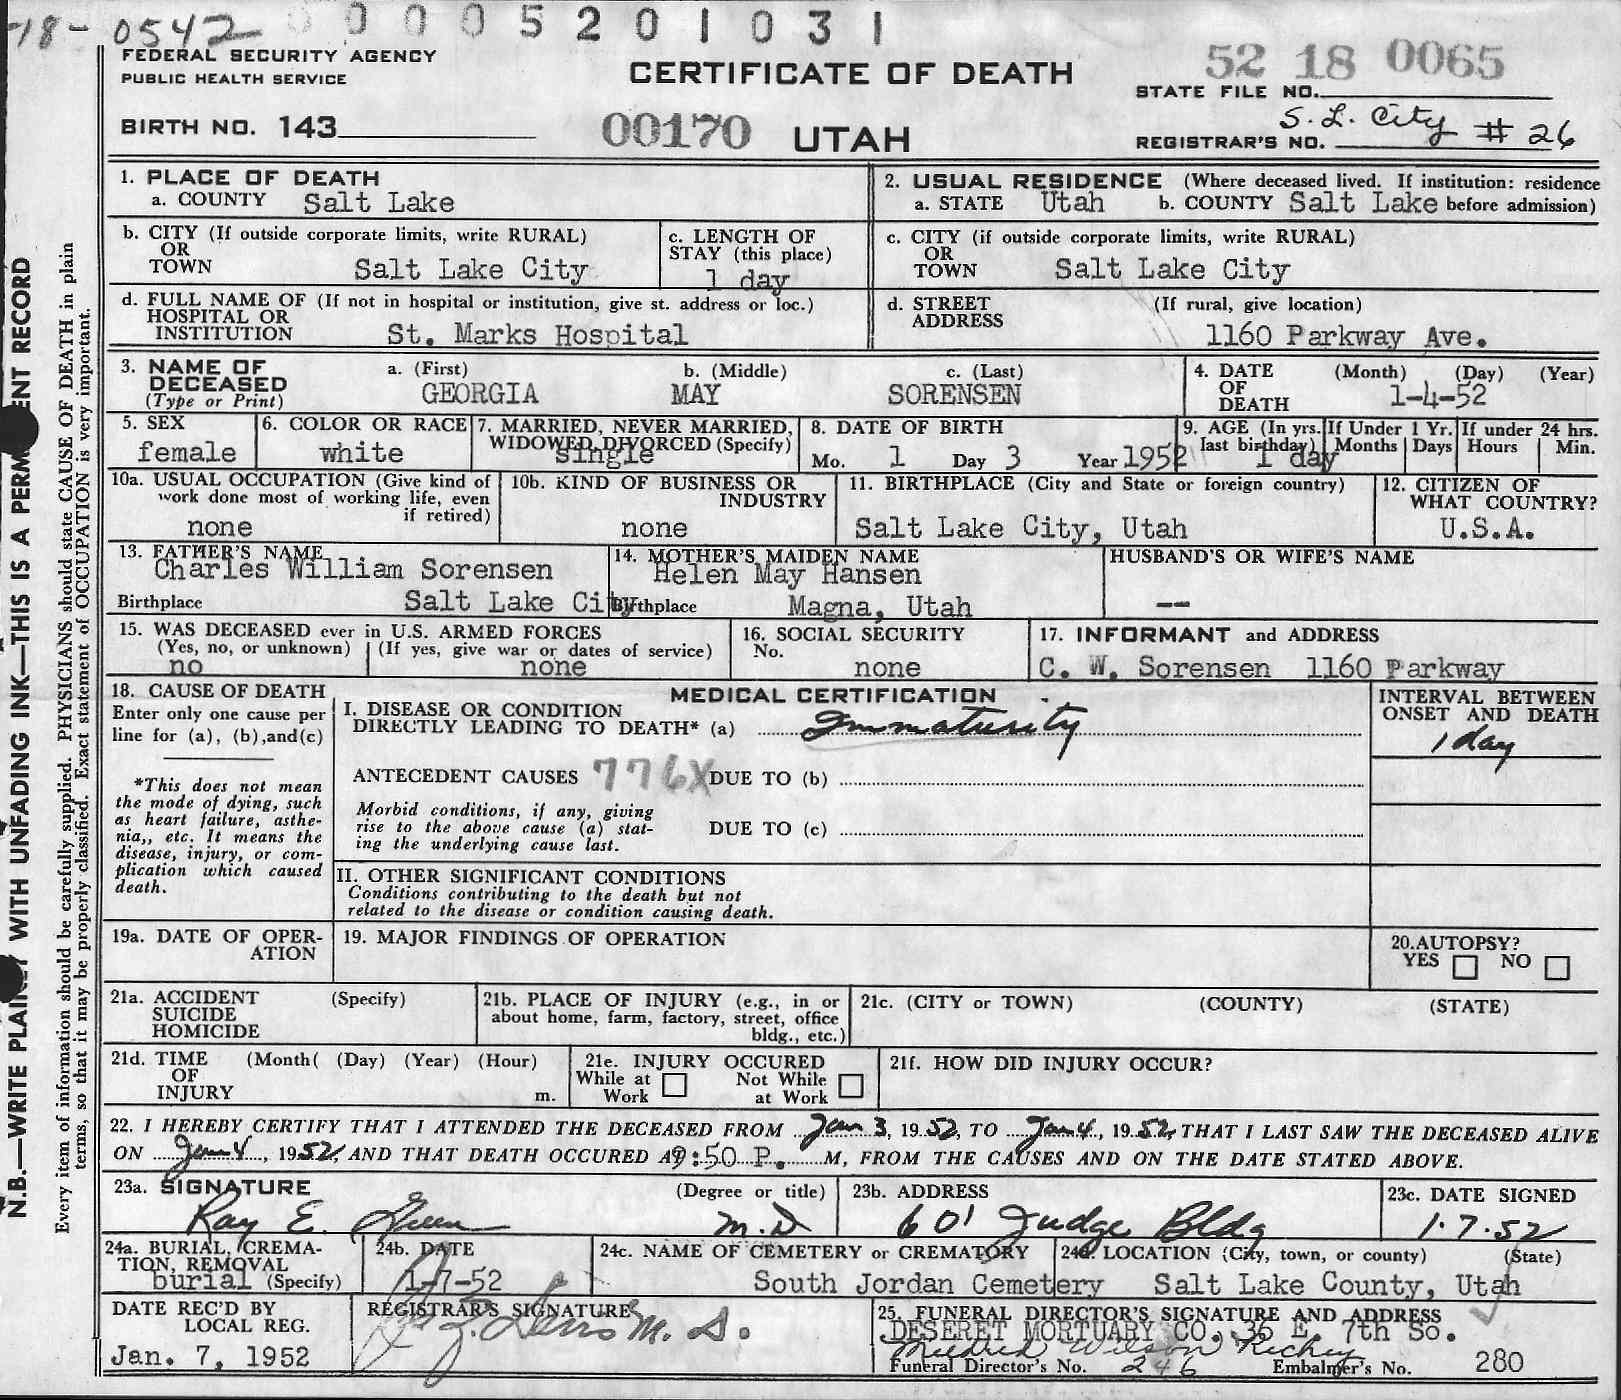 18-0542 0 0 0 5 2 0 1 0 3 1
FEDERAL SECURITY AGENCY
PUBLIC HEALTH SERVICE
CERTIFICATE OF DEATH
52 18 0065
STATE FILE NO.
BIRTH NO. 143
00170 UTAH
S. L. City # 26
REGISTRAR'S NO.
N.B.—WRITE PLAINLY WITH UNFADING INK—THIS IS A PERMANENT RECORD
Every item of information should be carefully supplied. PHYSICIANS should state CAUSE OF DEATH in plain
terms, so that it may be properly classified. Exact statement of OCCUPATION is very important.
1. PLACE OF DEATH
a. COUNTY Salt Lake
2. USUAL RESIDENCE (Where deceased lived. If institution: residence
a. STATE Utah b. COUNTY Salt Lake before admission)
b. CITY (If outside corporate limits, write RURAL)
OR
TOWN Salt Lake City
c. LENGTH OF
STAY (this place)
1 day
c. CITY (if outside corporate limits, write RURAL)
OR
TOWN Salt Lake City
d. FULL NAME OF (If not in hospital or institution, give st. address or loc.)
HOSPITAL OR
INSTITUTION St. Marks Hospital
d. STREET (If rural, give location)
ADDRESS
1160 Parkway Ave.
3. NAME OF a. (First) b. (Middle) c. (Last)
DECEASED GEORGIA MAY SORENSEN
(Type or Print)
4. DATE (Month) (Day) (Year)
OF
DEATH 1-4-52
5. SEX
female
6. COLOR OR RACE
white
7. MARRIED, NEVER MARRIED,
WIDOWED, DIVORCED (Specify)
single
8. DATE OF BIRTH
Mo. 1 Day 3 Year 1952
9. AGE (In yrs.
last birthday)
1 day
If Under 1 Yr.
Months Days
If under 24 hrs.
Hours Min.
10a. USUAL OCCUPATION (Give kind of
work done most of working life, even
if retired)
none
10b. KIND OF BUSINESS OR
INDUSTRY
none
11. BIRTHPLACE (City and State or foreign country)
Salt Lake City, Utah
12. CITIZEN OF
WHAT COUNTRY?
U.S.A.
13. FATHER'S NAME
Charles William Sorensen
Birthplace Salt Lake City
14. MOTHER'S MAIDEN NAME
Helen May Hansen
Birthplace Magna, Utah
HUSBAND'S OR WIFE'S NAME
--
15. WAS DECEASED ever in U.S. ARMED FORCES
(Yes, no, or unknown) (If yes, give war or dates of service)
no none
16. SOCIAL SECURITY
No.
none
17. INFORMANT and ADDRESS
C. W. Sorensen 1160 Parkway
18. CAUSE OF DEATH
Enter only one cause per
line for (a), (b),and(c)
*This does not mean
the mode of dying, such
as heart failure, asthe-
nia,, etc. It means the
disease, injury, or com-
plication which caused
death.
MEDICAL CERTIFICATION
I. DISEASE OR CONDITION
DIRECTLY LEADING TO DEATH* (a) Immaturity
INTERVAL BETWEEN
ONSET AND DEATH
1 day
ANTECEDENT CAUSES 776X DUE TO (b)
Morbid conditions, if any, giving
rise to the above cause (a) stat-
ing the underlying cause last.
DUE TO (c)
II. OTHER SIGNIFICANT CONDITIONS
Conditions contributing to the death but not
related to the disease or condition causing death.
19a. DATE OF OPER-
ATION
19. MAJOR FINDINGS OF OPERATION
20.AUTOPSY?
YES NO
21a. ACCIDENT (Specify)
SUICIDE
HOMICIDE
21b. PLACE OF INJURY (e.g., in or
about home, farm, factory, street, office
bldg., etc.)
21c. (CITY or TOWN) (COUNTY) (STATE)
21d. TIME (Month( (Day) (Year) (Hour)
OF
INJURY m.
21e. INJURY OCCURED
While at Not While
Work at Work
21f. HOW DID INJURY OCCUR?
22. I HEREBY CERTIFY THAT I ATTENDED THE DECEASED FROM Jan 3, 1952, TO Jan 4, 1952, THAT I LAST SAW THE DECEASED ALIVE
ON Jan 4, 1952, AND THAT DEATH OCCURED A9:50 P. M, FROM THE CAUSES AND ON THE DATE STATED ABOVE.
23a. SIGNATURE (Degree or title)
Ray E. Green M.D
23b. ADDRESS
601 Judge Bldg
23c. DATE SIGNED
1.7.52
24a. BURIAL, CREMA-
TION, REMOVAL
burial (Specify)
24b. DATE
1-7-52
24c. NAME OF CEMETERY or CREMATORY
South Jordan Cemetery
24d. LOCATION (City, town, or county) (State)
Salt Lake County, Utah
DATE REC'D BY
LOCAL REG.
Jan. 7, 1952
REGISTRAR'S SIGNATURE
M. D.
25. FUNERAL DIRECTOR'S SIGNATURE AND ADDRESS
DESERET MORTUARY CO. 36 E. 7th So.
Mildred Wilson Richey
Funeral Director's No. 246 Embalmer's No. 280